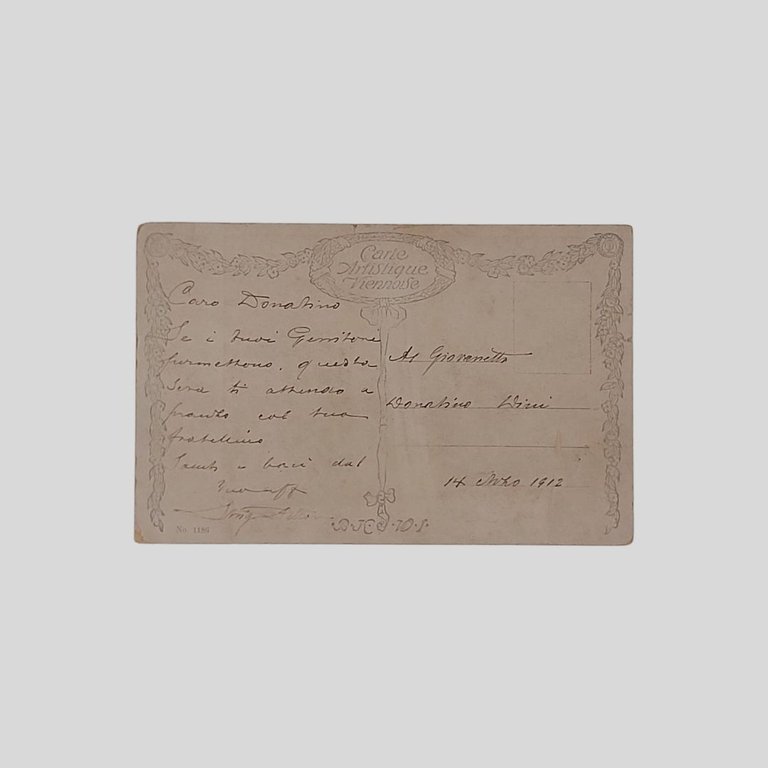 Carte
Artistique
Viennoise
Caro Donatino
Se i tuoi Genitori
permettono, questa
sera ti attendo a
pranzo col tuo
fratellino
e baci dal
tuo aff
Al Giovanetto
Donatino
14 1912
No. 1186
B.K.W.I.